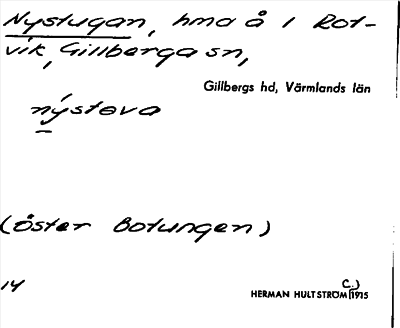 Nystugan, hma å 1 Rot-
vik, Gillberga sn,
Gillbergs hd, Värmlands län
nýstova
(öster Botungen)
14
HERMAN HULTSTRÖM (1915
C.)